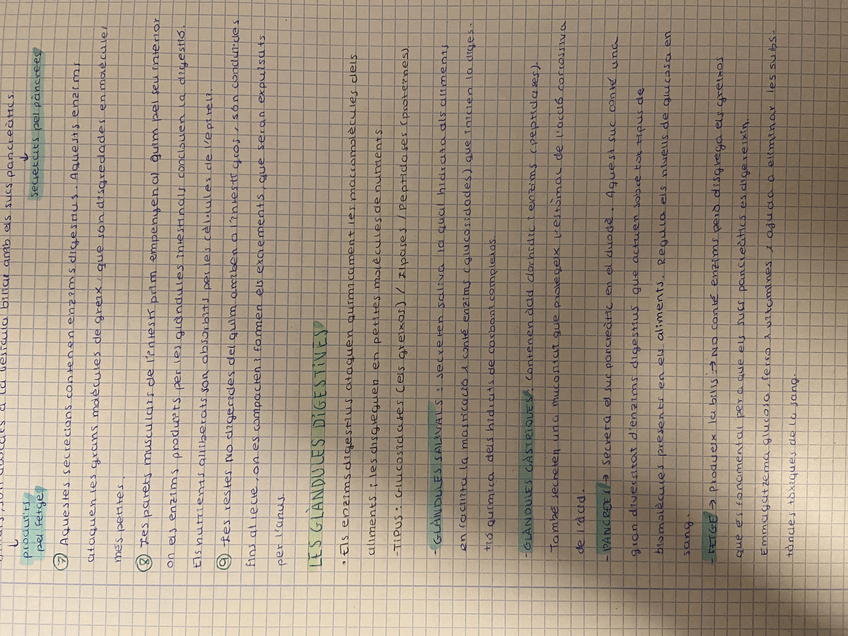 a la vesícula biliar amb els sucs pancreàtics.
produïts
pel fetge
secretats pel pàncrees
⑦ Aquestes secrecions contenen enzims digestius. Aquests enzims
ataquen les grans molècules de greix, que són disgregades en molècules
més petites.
⑧ Les parets musculars de l'intestí prim empenyen al quim pel seu interior
on els enzims produïts per les glàndules intestinals conclouen la digestió.
Els nutrients alliberats són absorbits per les cèl·lules de l'epiteli.
⑨ Les restes no digerides del quim arriben a l'intestí gros, són conduïdes
fins al recte, on es compacten i formen els excrements, que seran expulsats
per l'anus.
LES GLÀNDULES DIGESTIVES
· Els enzims digestius ataquen químicament les macromolècules dels
aliments i les disgreguen en petites molècules de nutrients.
- TIPUS: Glucosidases (els greixos) / Lipases / Peptidases (proteïnes)
- GLÀNDULES SALIVALS: secreten saliva la qual hidrata els aliments
en facilita la masticació i conté enzims (glucosidades) que inicien la diges-
tió química dels hidrats de carboni complexos.
- GLÀNDULES GÀSTRIQUES: contenen àcid clorhídric i enzims (peptidases).
També secreten una mucositat que protegeix l'estómac de l'acció corrosiva
de l'àcid.
- PÀNCREES → Secreta el suc pancreàtic en el duodè. Aquest suc conté una
gran diversitat d'enzims digestius que actuen sobre tot tipus de
biomolècules presents en els aliments. Regula els nivells de glucosa en
sang.
- FETGE → Produeix la bilis → No conté enzims però disgrega els greixos
que és fonamental per a que els sucs pancreàtics es digereixin.
Emmagatzema glucosa, ferro i vitamines i ajuda a eliminar les subs-
tàncies tòxiques de la sang.